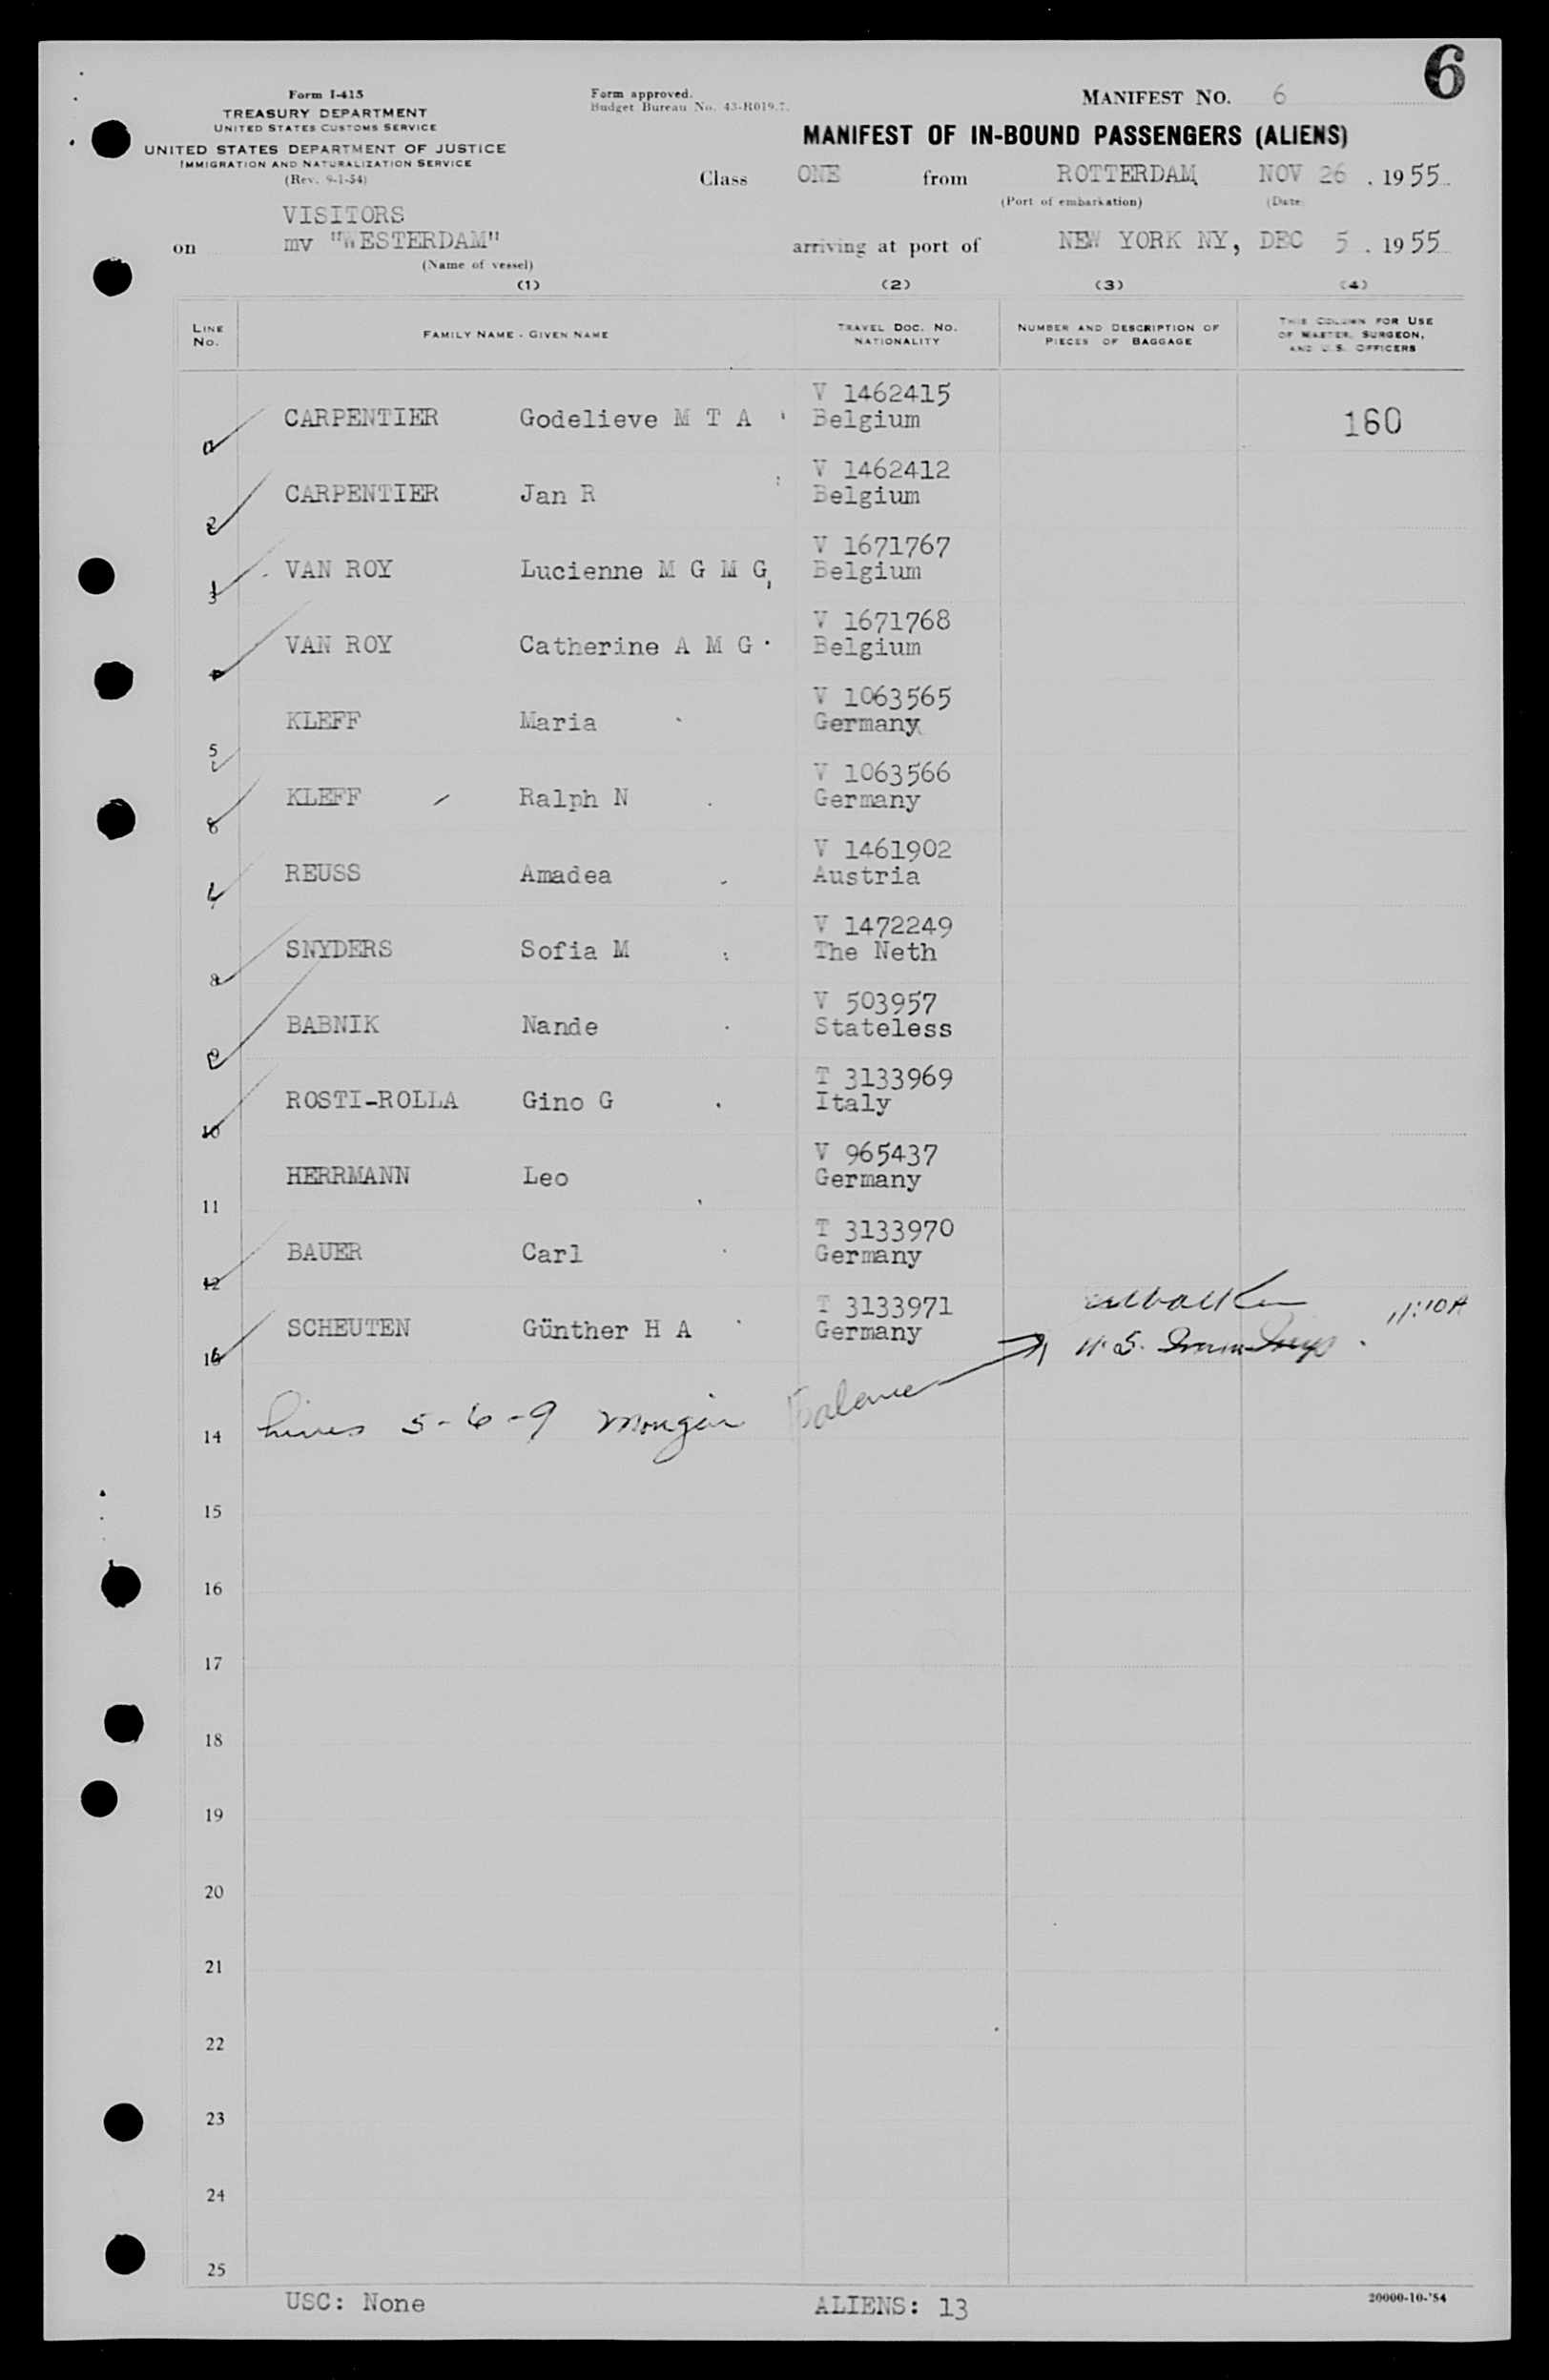 6
Form I-415
TREASURY DEPARTMENT
UNITED STATES CUSTOMS SERVICE
UNITED STATES DEPARTMENT OF JUSTICE
IMMIGRATION AND NATURALIZATION SERVICE
(Rev. 9-1-54)
Form approved.
Budget Bureau No. 43-R019.7.
MANIFEST NO. 6
MANIFEST OF IN-BOUND PASSENGERS (ALIENS)
Class ONE from ROTTERDAM NOV 26 , 1955
(Port of embarkation) (Date)
VISITORS
on mv "WESTERDAM" arriving at port of NEW YORK NY, DEC 5 , 1955
(Name of vessel)
(1) (2) (3) (4)
LINE No. FAMILY NAME - GIVEN NAME TRAVEL DOC. NO. NATIONALITY NUMBER AND DESCRIPTION OF PIECES OF BAGGAGE THIS COLUMN FOR USE OF MASTER, SURGEON, AND U.S. OFFICERS
V 1462415
CARPENTIER Godelieve M T A Belgium 160
V 1462412
2 CARPENTIER Jan R Belgium
V 1671767
3 VAN ROY Lucienne M G M G Belgium
V 1671768
VAN ROY Catherine A M G Belgium
V 1063565
5 KLEFF Maria Germany
V 1063566
6 KLEFF Ralph N Germany
V 1461902
7 REUSS Amadea Austria
V 1472249
8 SNYDERS Sofia M The Neth
V 503957
9 BABNIK Nande Stateless
T 3133969
10 ROSTI-ROLLA Gino G Italy
V 965437
11 HERRMANN Leo Germany
T 3133970
12 BAUER Carl Germany
T 3133971
13 SCHEUTEN Günther H A Germany
11:10A
U.S.
14 Lines 5-6-9 Mongin Balance
15
16
17
18
19
20
21
22
23
24
25
USC: None ALIENS: 13
20000-10-'54